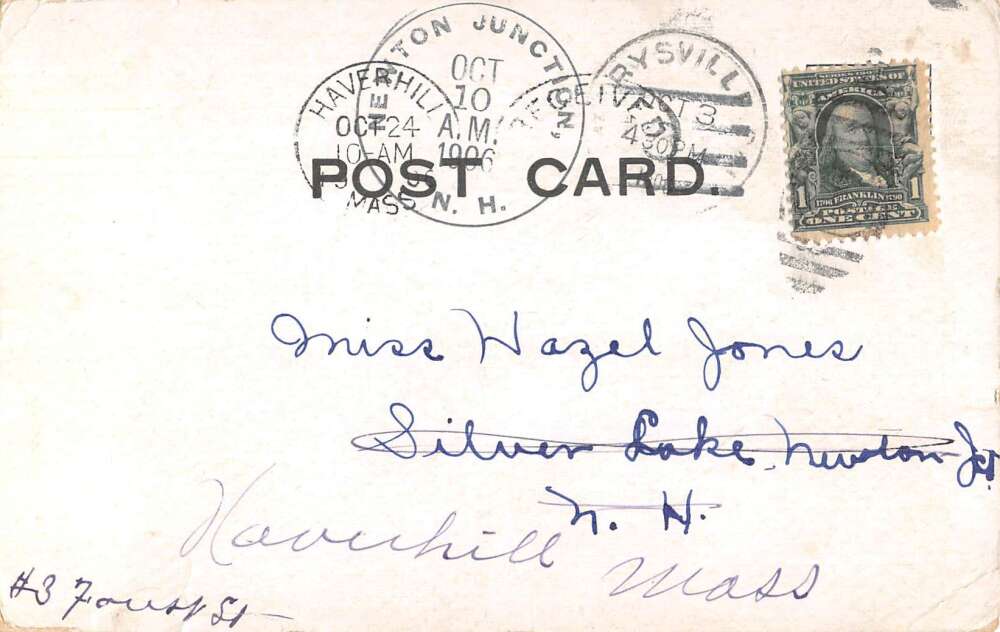 NEWTON JUNCTION,
OCT
10
A.M.
1906
N. H.
HAVERHILL
OCT 24
10-AM
MASS
RECEIVED
RYSVILL
OCT 3
4 30PM
POST CARD.
SERIES 1902
UNITED STATES OF
AMERICA
1706 FRANKLIN 1790
POSTAGE
1 ONE CENT 1
Miss Hazel Jones
Silver Lake, Newton Jct.
N. H.
Haverhill
Mass
#3 Forest St